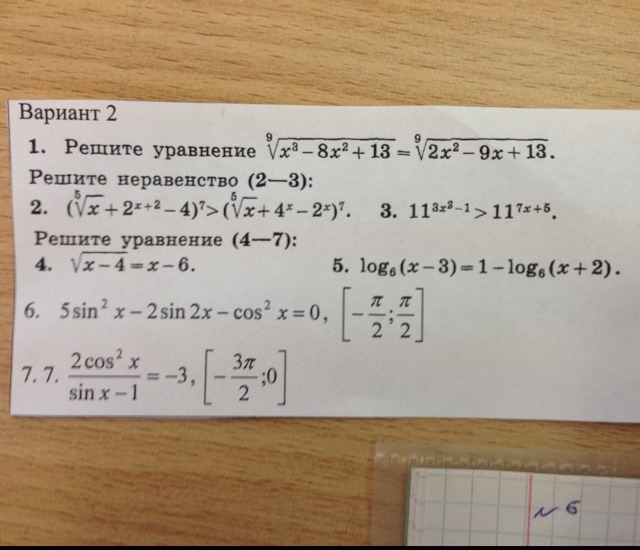 Вариант 2
1. Решите уравнение ⁹√(x³ – 8x² + 13) = ⁹√(2x² – 9x + 13).
Решите неравенство (2—3):
2. (⁵√x + 2ˣ⁺² – 4)⁷ > (⁵√x + 4ˣ – 2ˣ)⁷. 3. 11^(3x² – 1) > 11^(7x + 5).
Решите уравнение (4—7):
4. √(x – 4) = x – 6. 5. log₆(x – 3) = 1 – log₆(x + 2).
6. 5 sin² x – 2 sin 2x – cos² x = 0, [–π/2; π/2]
7. 7. (2 cos² x)/(sin x – 1) = –3, [–3π/2; 0]
№ 6